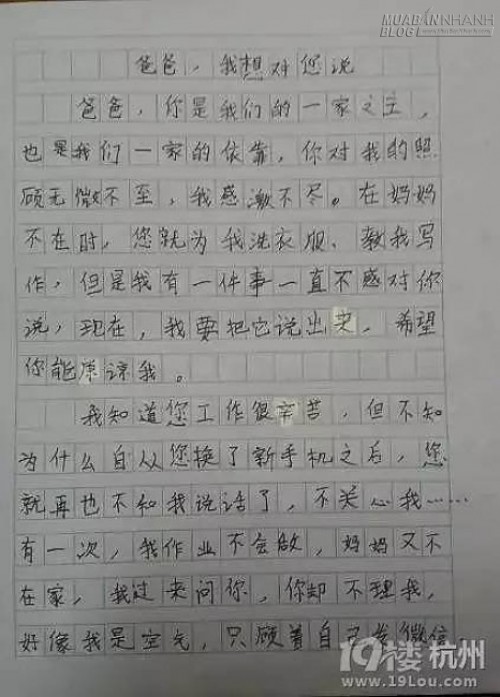 MUABANNHANH
BLOG
爸爸，我想对您说
爸爸，你是我们的一家之主，
也是我们一家的依靠，你对我的照
顾无微不至，我感激不尽。在妈妈
不在时，您就为我洗衣服、教我写
作，但是我有一件事一直不感对你
说，现在，我要把它说出来，希望
你能原谅我。
我知道您工作很辛苦，但不知
为什么自从您换了新手机之后，您
就再也不和我说话了，不关心我……
有一次，我作业不会做，妈妈又不
在家，我过来问你，你却不理我，
好像我是空气，只顾着自己发微信
19楼杭州
www.19lou.com